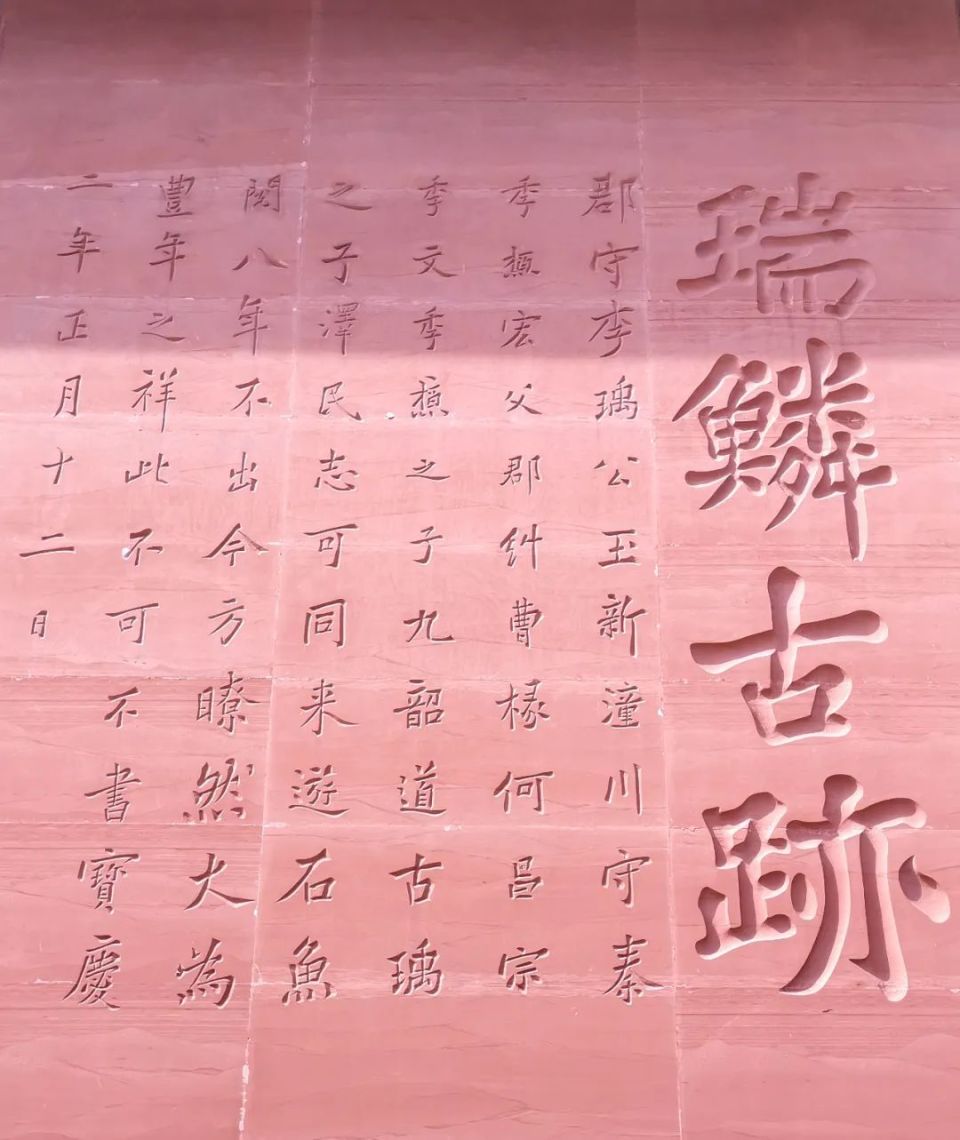 瑞鱗古跡
郡守李瑀公玉新潼川守秦
季槱宏父郡糾曹掾何昌宗
季文季槱之子九韶道古瑀
之子澤民志可同来遊石魚
閱八年不出今方瞭然大為
豐年之祥此不可不書寶慶
二年正月十二日